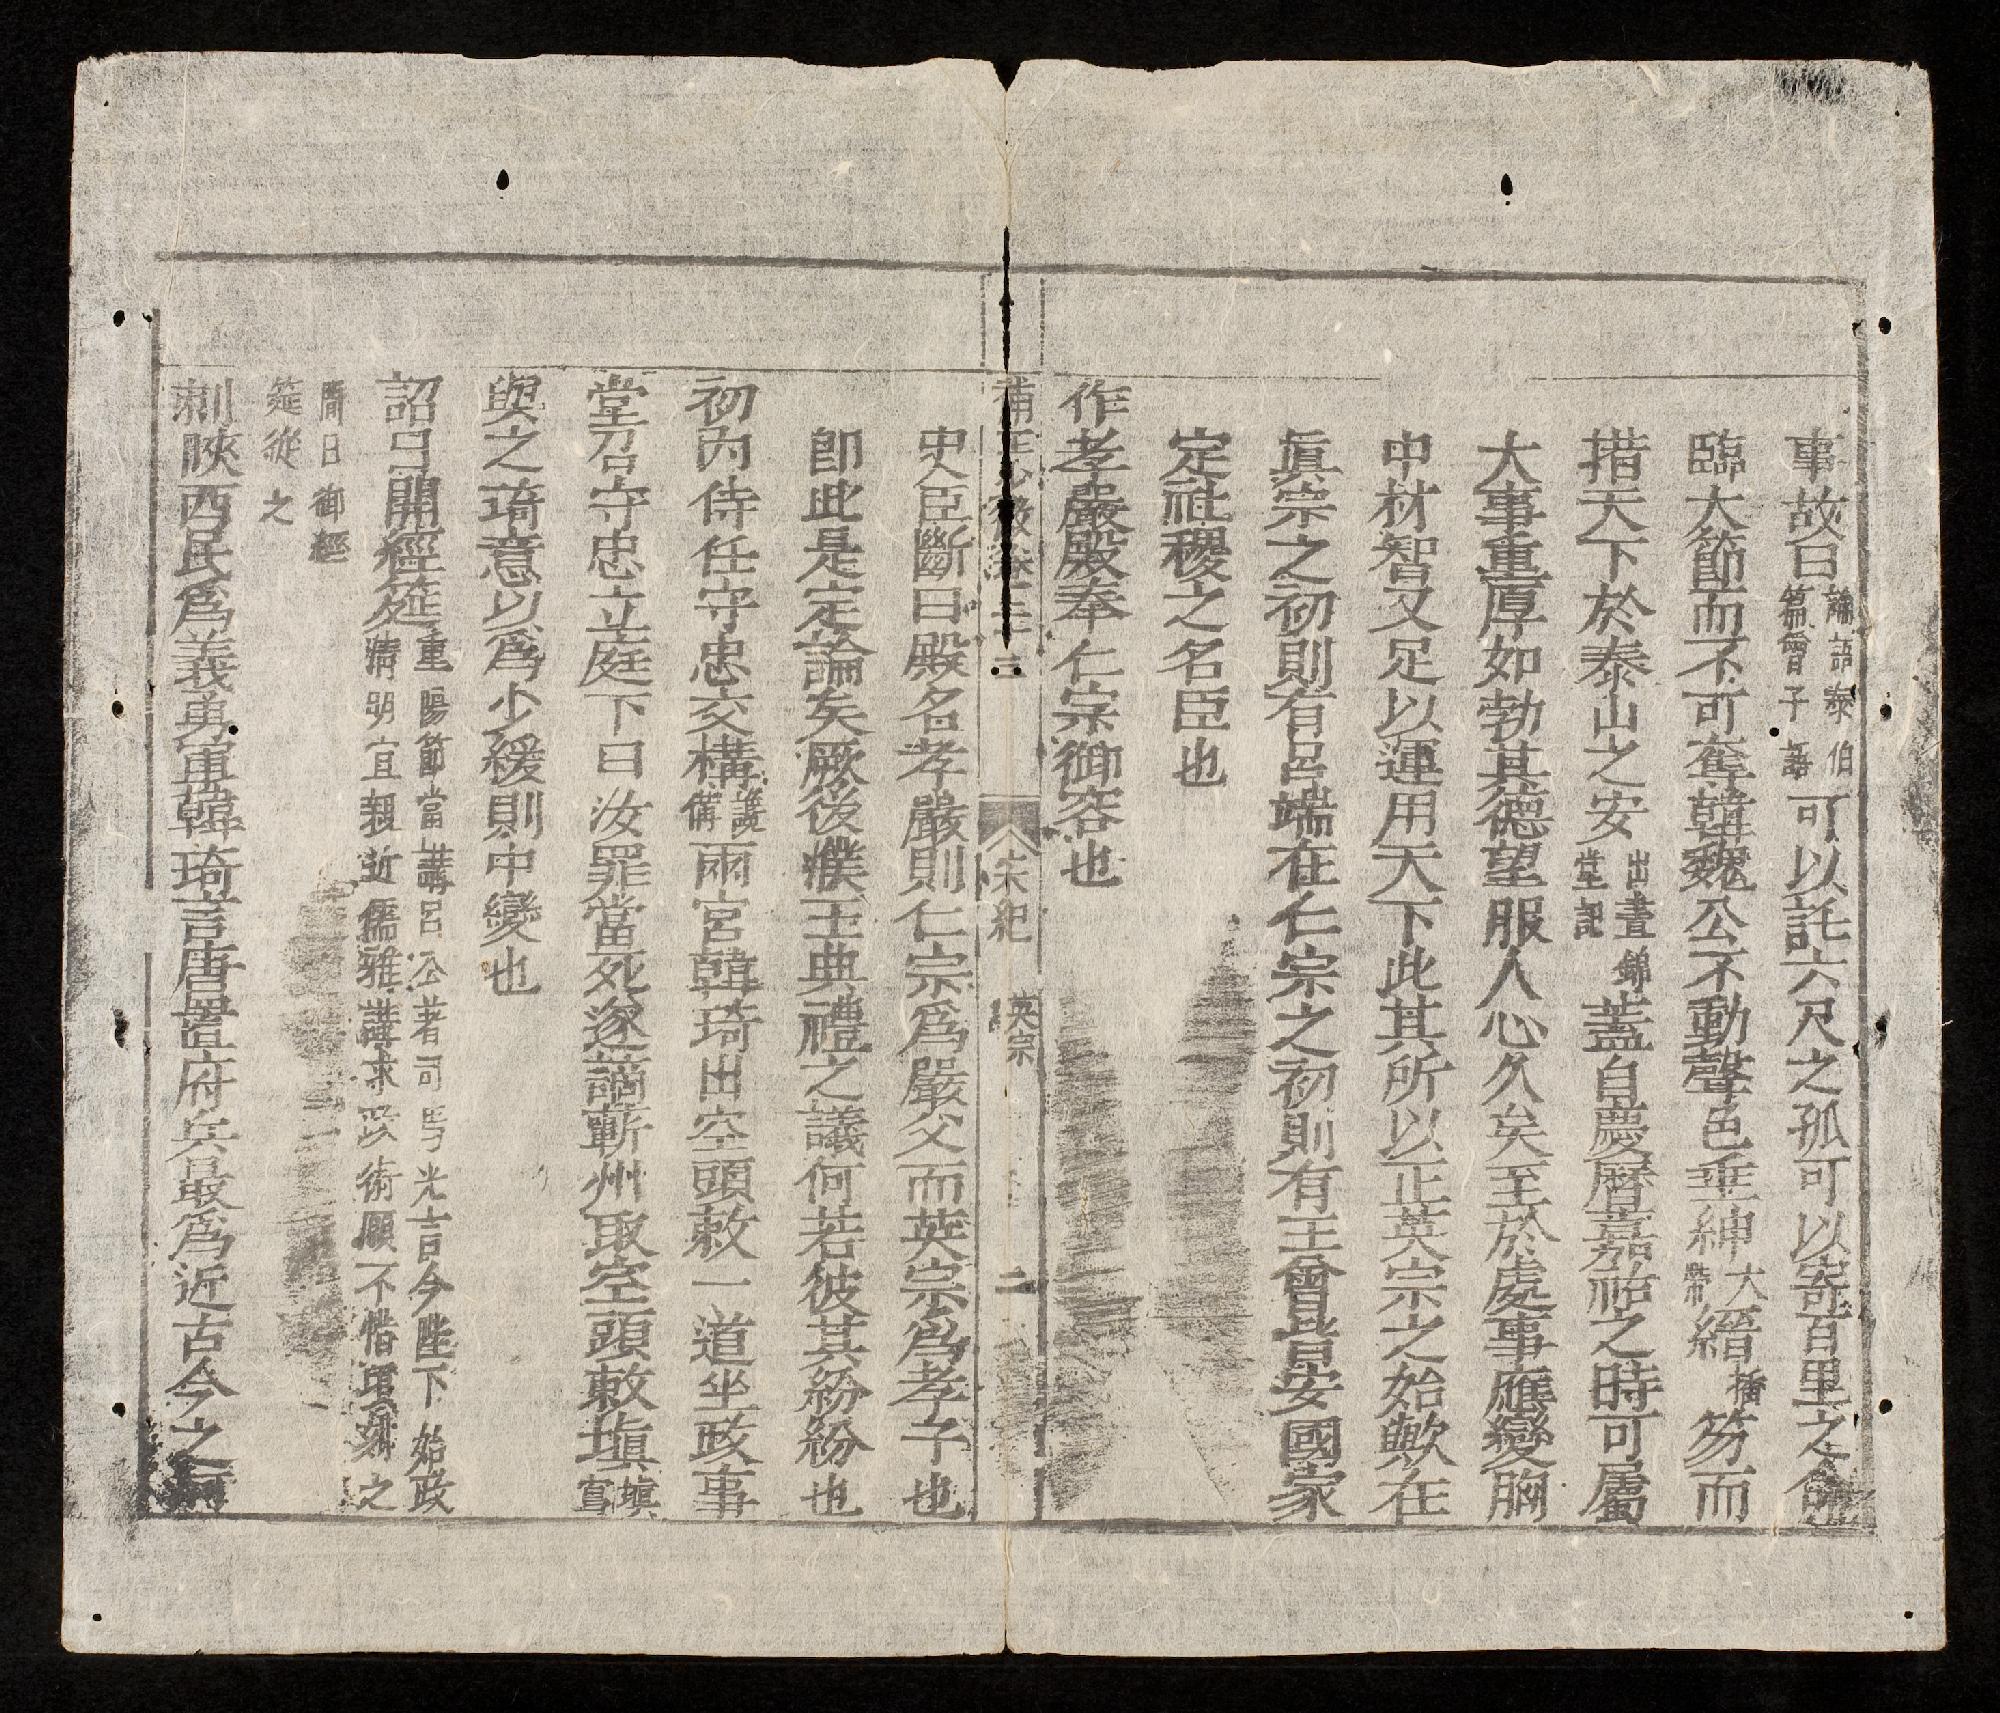 事故曰論語泰伯篇曾子語可以託六尺之孤可以寄百里之命
臨大節而不可奪韓魏公不動聲色垂紳大帶縉插笏而
措天下於泰山之安出晝錦堂記蓋自慶曆嘉祐之時可屬
大事重厚如勃其德望服人心久矣至於處事應變胸
中材智又足以運用天下此其所以正英宗之始歟在
眞宗之初則有呂端在仁宗之初則有王曾皆安國家
定社稷之名臣也
作孝嚴殿奉仁宗御容也
宋紀 英宗 二
史臣斷曰殿名孝嚴則仁宗爲嚴父而英宗爲孝子也
即此是定論矣厥後濮王典禮之議何若彼其紛紛也
初內侍任守忠交構讒構兩宮韓琦出空頭敕一道坐政事
堂召守忠立庭下曰汝罪當死逐謫蘄州取空頭敕塡塡寫
與之琦意以爲少緩則中變也
詔日開經筵重陽節當講呂公著司馬光言今陛下始政淸明宜親近儒雅講求政術願不惜頃刻之
間日御經筵從之
刺陝西民爲義勇軍韓琦言唐置府兵最爲近古今之